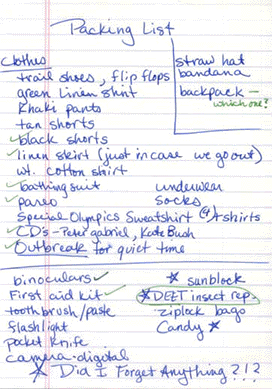 Packing List
Clothes
trail shoes, flip flops
green linen shirt
khaki pants
tan shorts
black shorts
linen skirt (just in case we go out)
wt. cotton shirt
bathing suit
pareo
Special Olympics Sweatshirt (4) T shirts
CD's - Peter Gabriel, Kate Bush
Outbreak for quiet time
straw hat
bandana
backpack - which one?
underwear
socks
binoculars
First aid kit
toothbrush/paste
flashlight
pocket knife
camera - digital
sunblock
DEET insect rep.
ziplock bags
Candy
Did I Forget Anything?!?